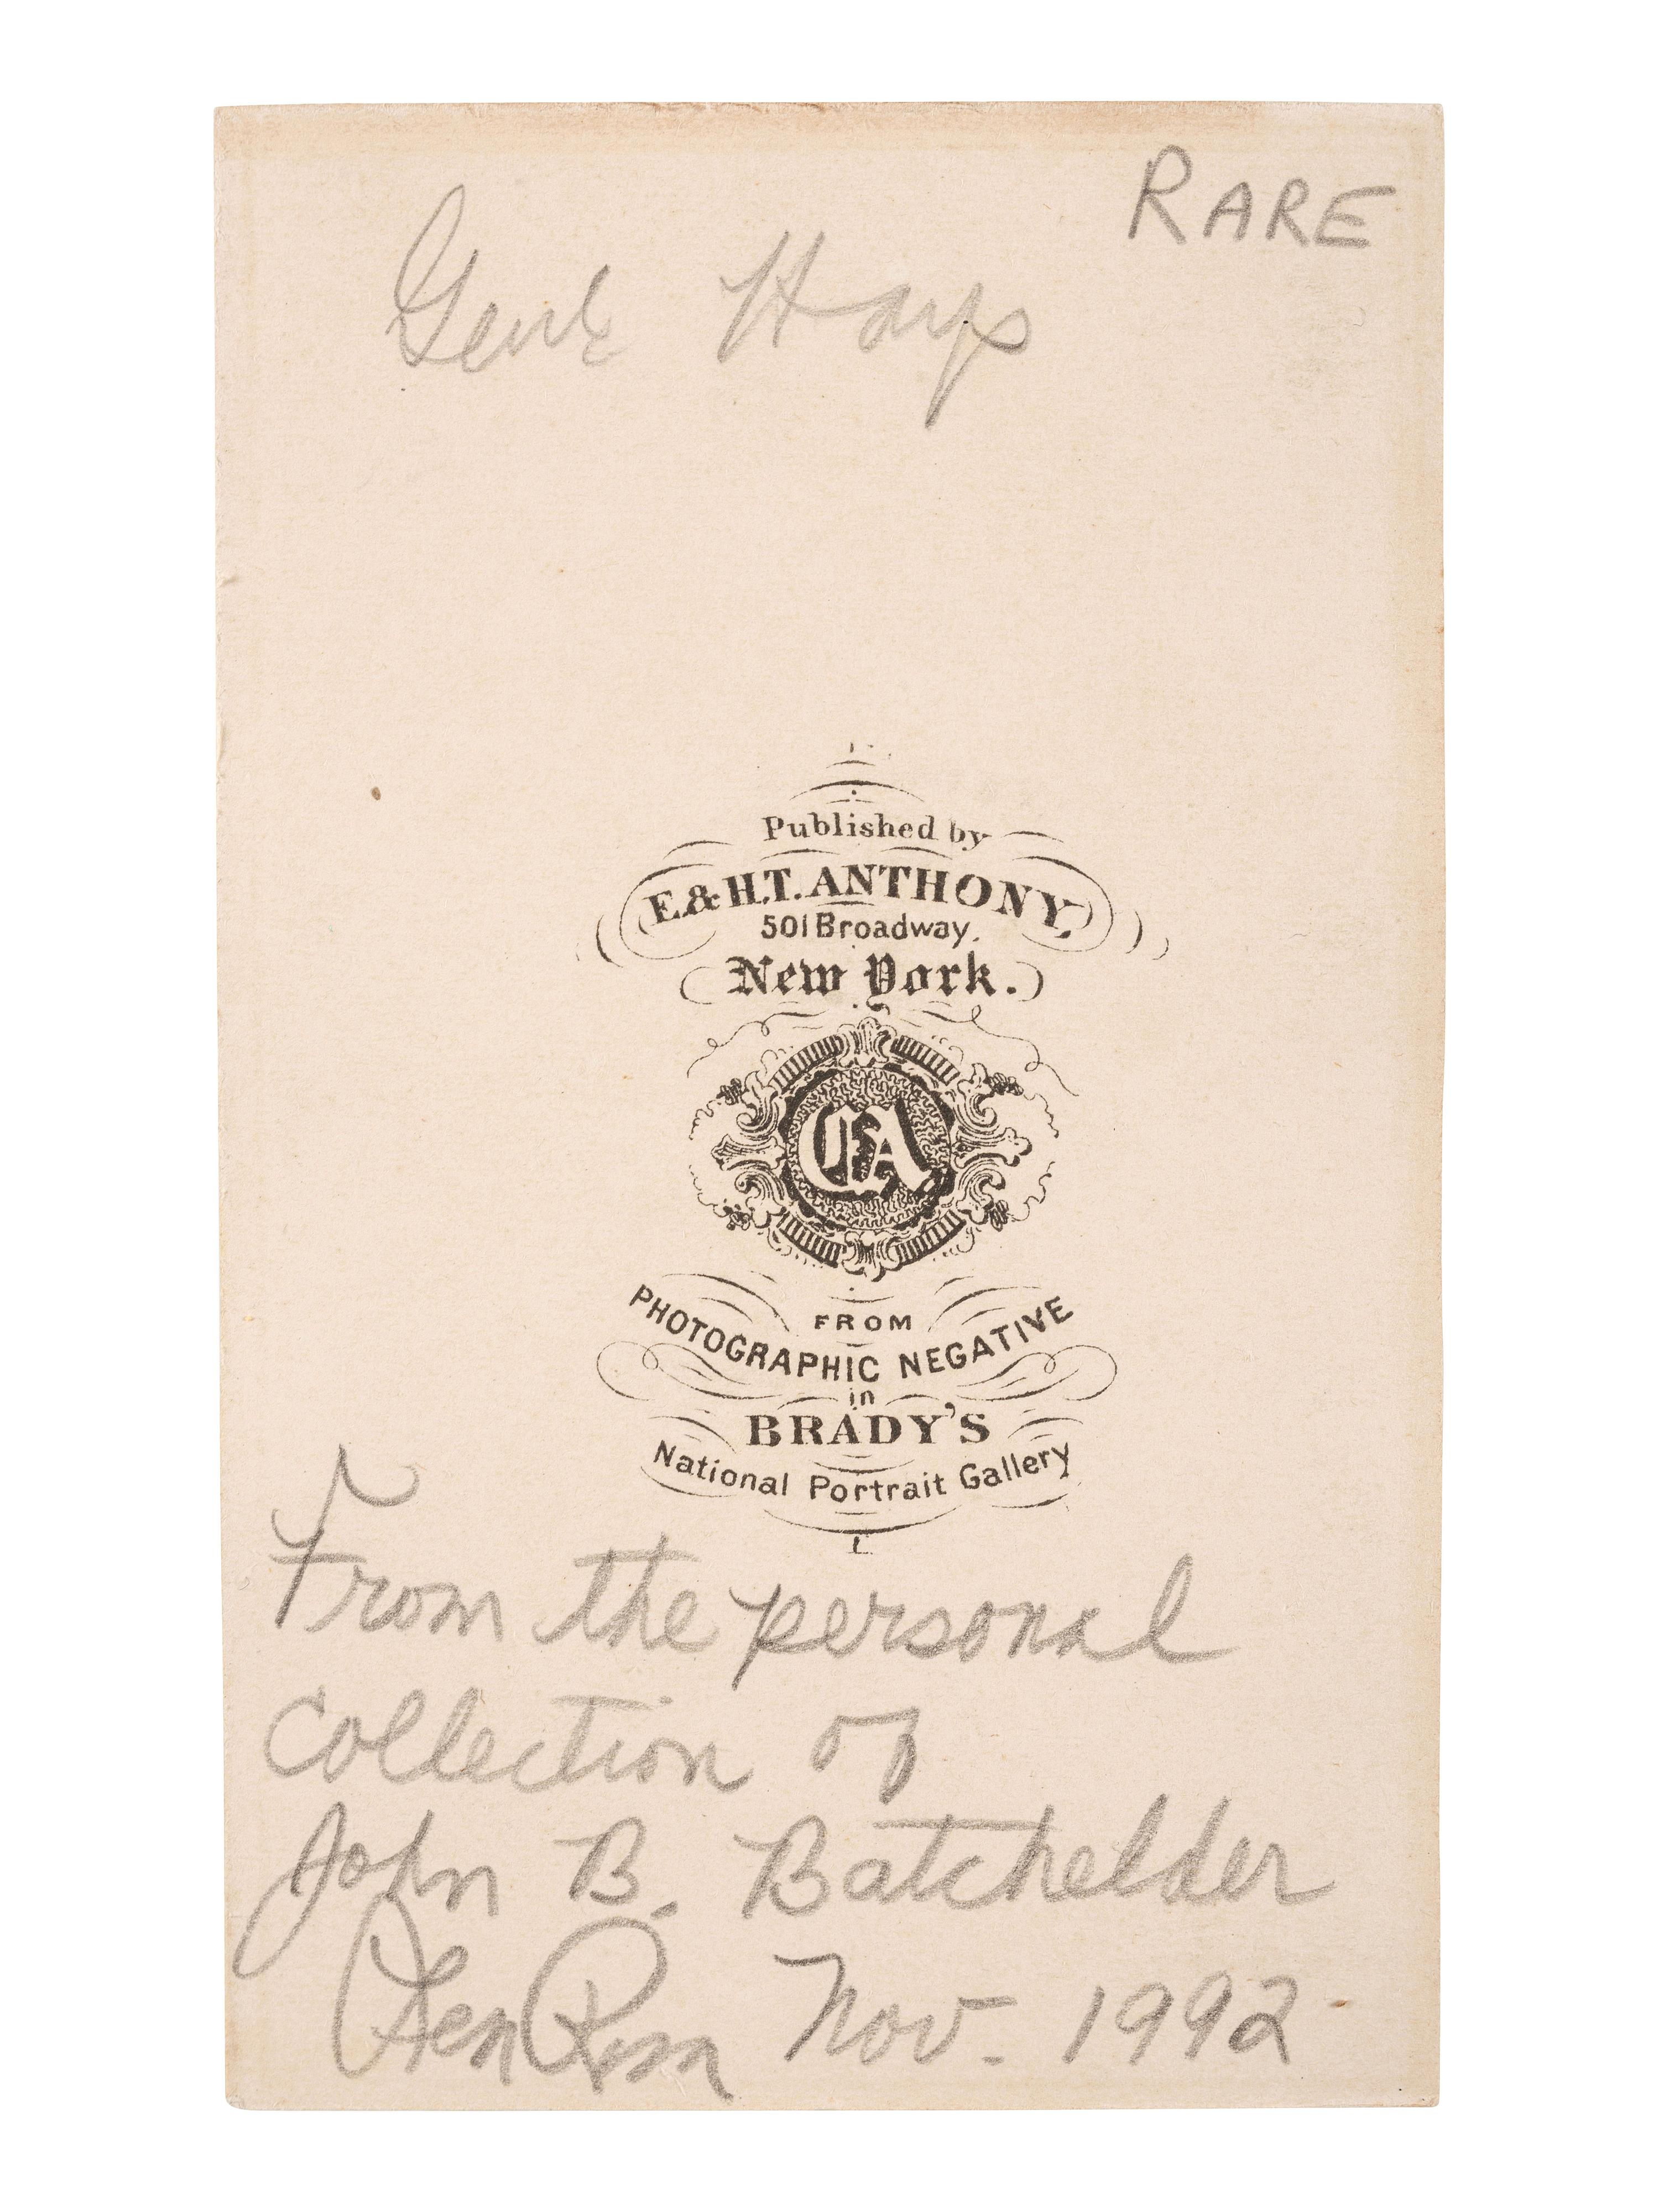 RARE
Genl Hays
Published by
E. & H.T. ANTHONY,
501 Broadway,
New York.
EA
FROM
PHOTOGRAPHIC NEGATIVE
in
BRADY'S
National Portrait Gallery
From the personal
collection of
John B. Batchelder
Nov. 1992